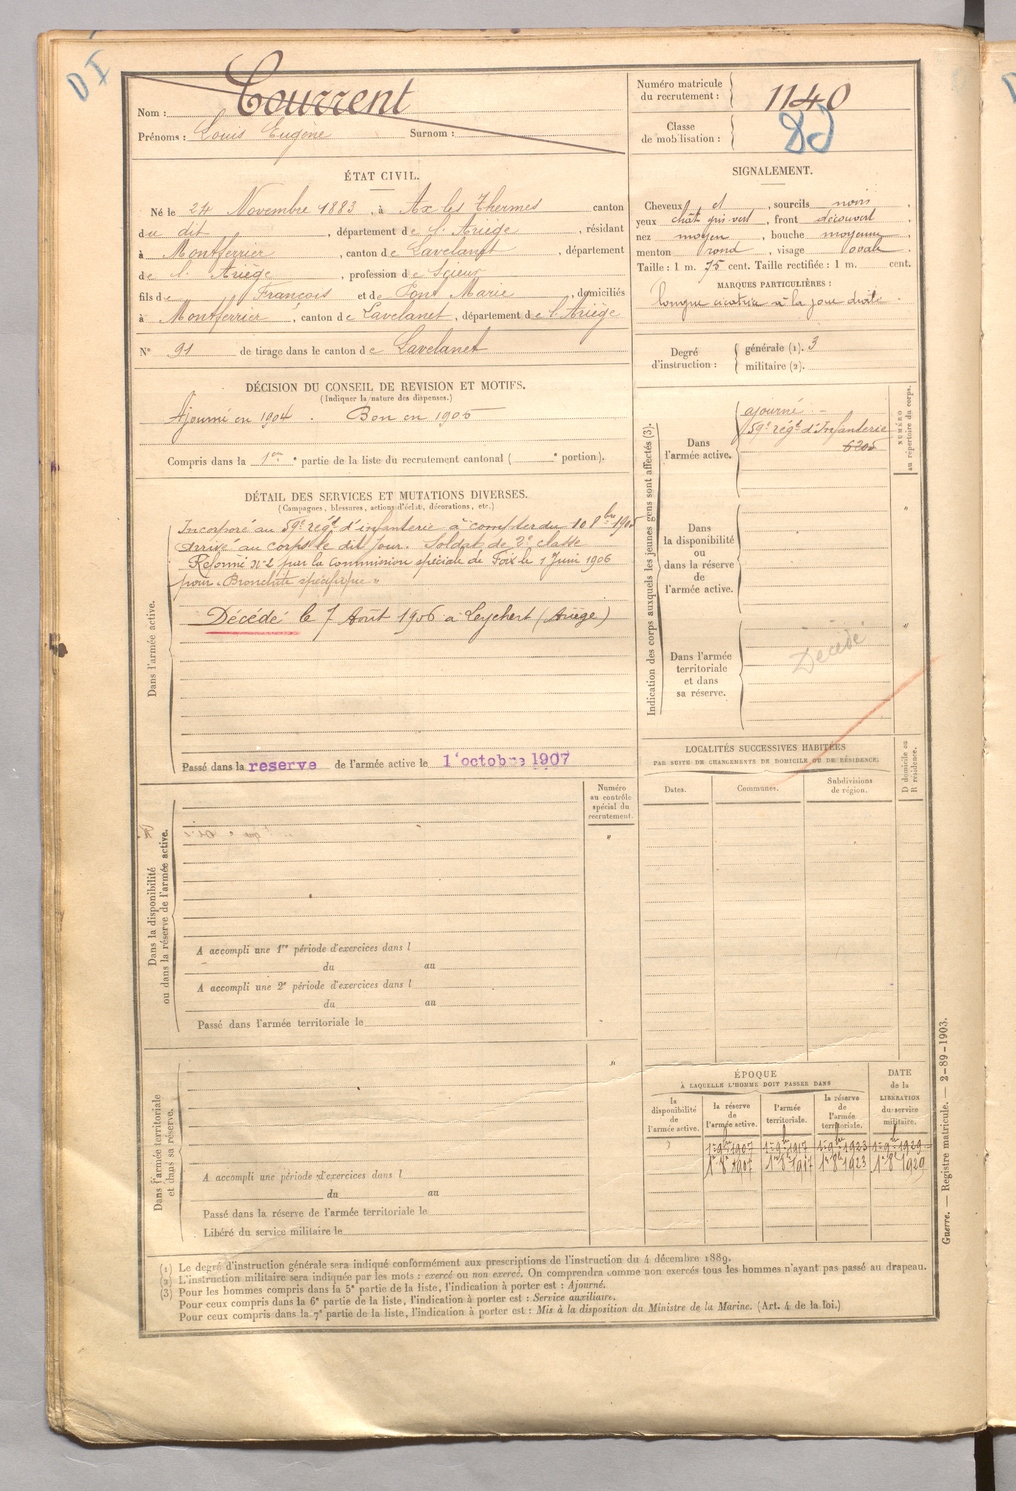 DI
Nom : Courrent
Prénoms : Louis Eugene Surnom :
Numéro matricule du recrutement : 1140
Classe de mobilisation :
ÉTAT CIVIL.
Né le 24 Novembre 1883, à Ax les Thermes canton
du dit, département de l'Ariège, résidant
à Montferrier, canton de Lavelanet, département
de l'Ariège, profession de Scieur
fils de François et de Font Marie, domiciliés
à Montferrier, canton de Lavelanet, département de l'Ariège
N° 91 de tirage dans le canton de Lavelanet
SIGNALEMENT.
Cheveux et, sourcils noirs,
yeux chat. gris vert, front découvert
nez moyen, bouche moyenne
menton rond, visage ovale
Taille : 1 m. 75 cent. Taille rectifiée : 1 m. cent.
MARQUES PARTICULIÈRES :
longue cicatrice à la joue droite.
Degré d'instruction : générale (1). 3
militaire (2).
DÉCISION DU CONSEIL DE REVISION ET MOTIFS.
(Indiquer la nature des dispenses.)
Ajourné en 1904. Bon en 1905
Compris dans la 1ere partie de la liste du recrutement cantonal ( e portion).
DÉTAIL DES SERVICES ET MUTATIONS DIVERSES.
(Campagnes, blessures, actions d'éclat, décorations, etc.)
Dans l'armée active.
Incorporé au 59e régt d'infanterie à compter du 10 8bre 1905
arrivé au corps le dit jour. Soldat de 2e classe
Réformé n°2 par la Commission spéciale de Foix le 1 Juin 1906
pour « Bronchite spécifique »
Décédé le 7 Août 1906 à Leychert (Ariège)
Passé dans la reserve de l'armée active le 1 octobre 1907
Indication des corps auxquels les jeunes gens sont affectés (3).
NUMÉRO
au répertoire du corps.
Dans l'armée active.
ajourné
59e régt d'Infanterie
6205
Dans la disponibilité ou dans la réserve de l'armée active.
"
Dans l'armée territoriale et dans sa réserve.
"
Décédé
LOCALITÉS SUCCESSIVES HABITÉES
PAR SUITE DE CHANGEMENTS DE DOMICILE OU DE RÉSIDENCE.
D domicile ou R résidence.
Dates. Communes. Subdivisions de région.
Numéro au contrôle spécial du recrutement.
"
Dans la disponibilité ou dans la réserve de l'armée active.
A accompli une 1re période d'exercices dans l
du au
A accompli une 2e période d'exercices dans l
du au
Passé dans l'armée territoriale le
"
Dans l'armée territoriale et dans sa réserve.
A accompli une période d'exercices dans l
du au
Passé dans la réserve de l'armée territoriale le
Libéré du service militaire le
ÉPOQUE
À LAQUELLE L'HOMME DOIT PASSER DANS
DATE de la LIBÉRATION du service militaire.
la disponibilité de l'armée active. la réserve de l'armée active. l'armée territoriale. la réserve de l'armée territoriale.
1er 9bre 1907 1er 9bre 1917 1er 9bre 1923 1er 9bre 1929
1er 8bre 1907 1er 8bre 1917 1er 8bre 1923 1er 8bre 1929
Guerre. — Registre matricule. — 2-89-1903.
(1) Le degré d'instruction générale sera indiqué conformément aux prescriptions de l'instruction du 4 décembre 1889.
(2) L'instruction militaire sera indiquée par les mots : exercé ou non exercé. On comprendra comme non exercés tous les hommes n'ayant pas passé au drapeau.
(3) Pour les hommes compris dans la 5e partie de la liste, l'indication à porter est : Ajourné.
Pour ceux compris dans la 6e partie de la liste, l'indication à porter est : Service auxiliaire.
Pour ceux compris dans la 7e partie de la liste, l'indication à porter est : Mis à la disposition du Ministre de la Marine. (Art. 4 de la loi.)